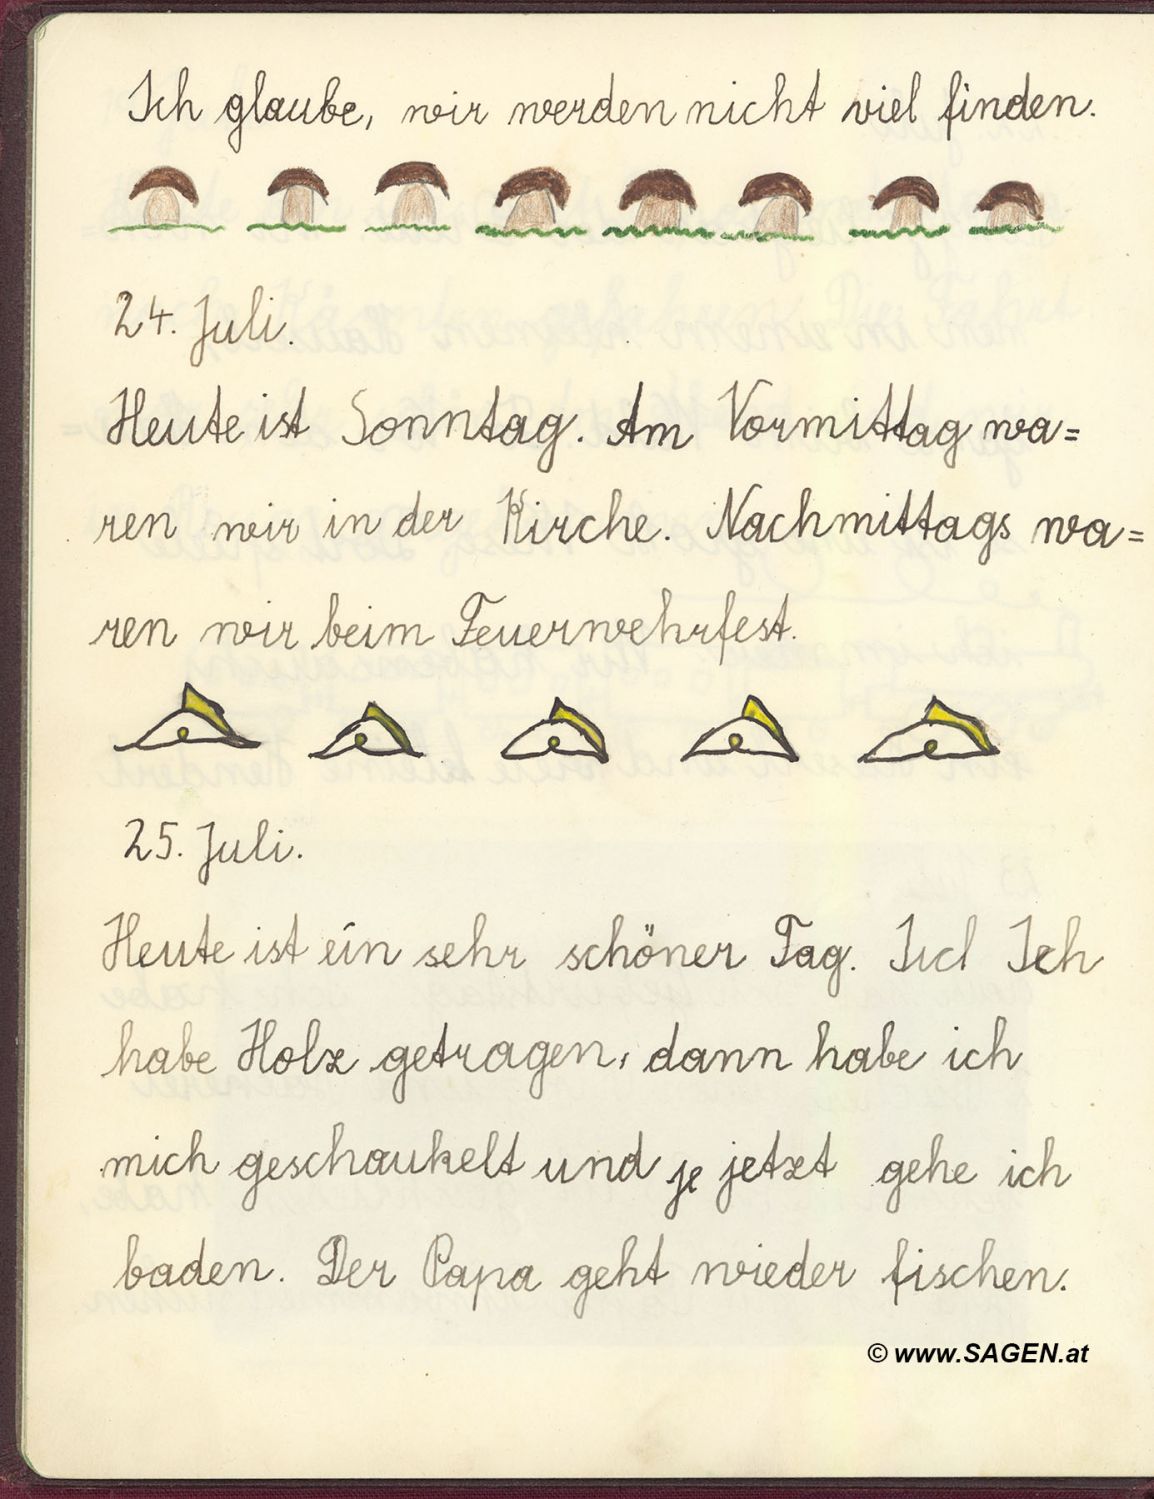 Ich glaube, wir werden nicht viel finden.
24. Juli.
Heute ist Sonntag. Am Vormittag wa=
ren wir in der Kirche. Nachmittags wa=
ren wir beim Feuerwehrfest.
25. Juli.
Heute ist ein sehr schöner Tag. Icl Ich
habe Holz getragen, dann habe ich
mich geschaukelt und je jetzt gehe ich
baden. Der Papa geht wieder fischen.
© www.SAGEN.at